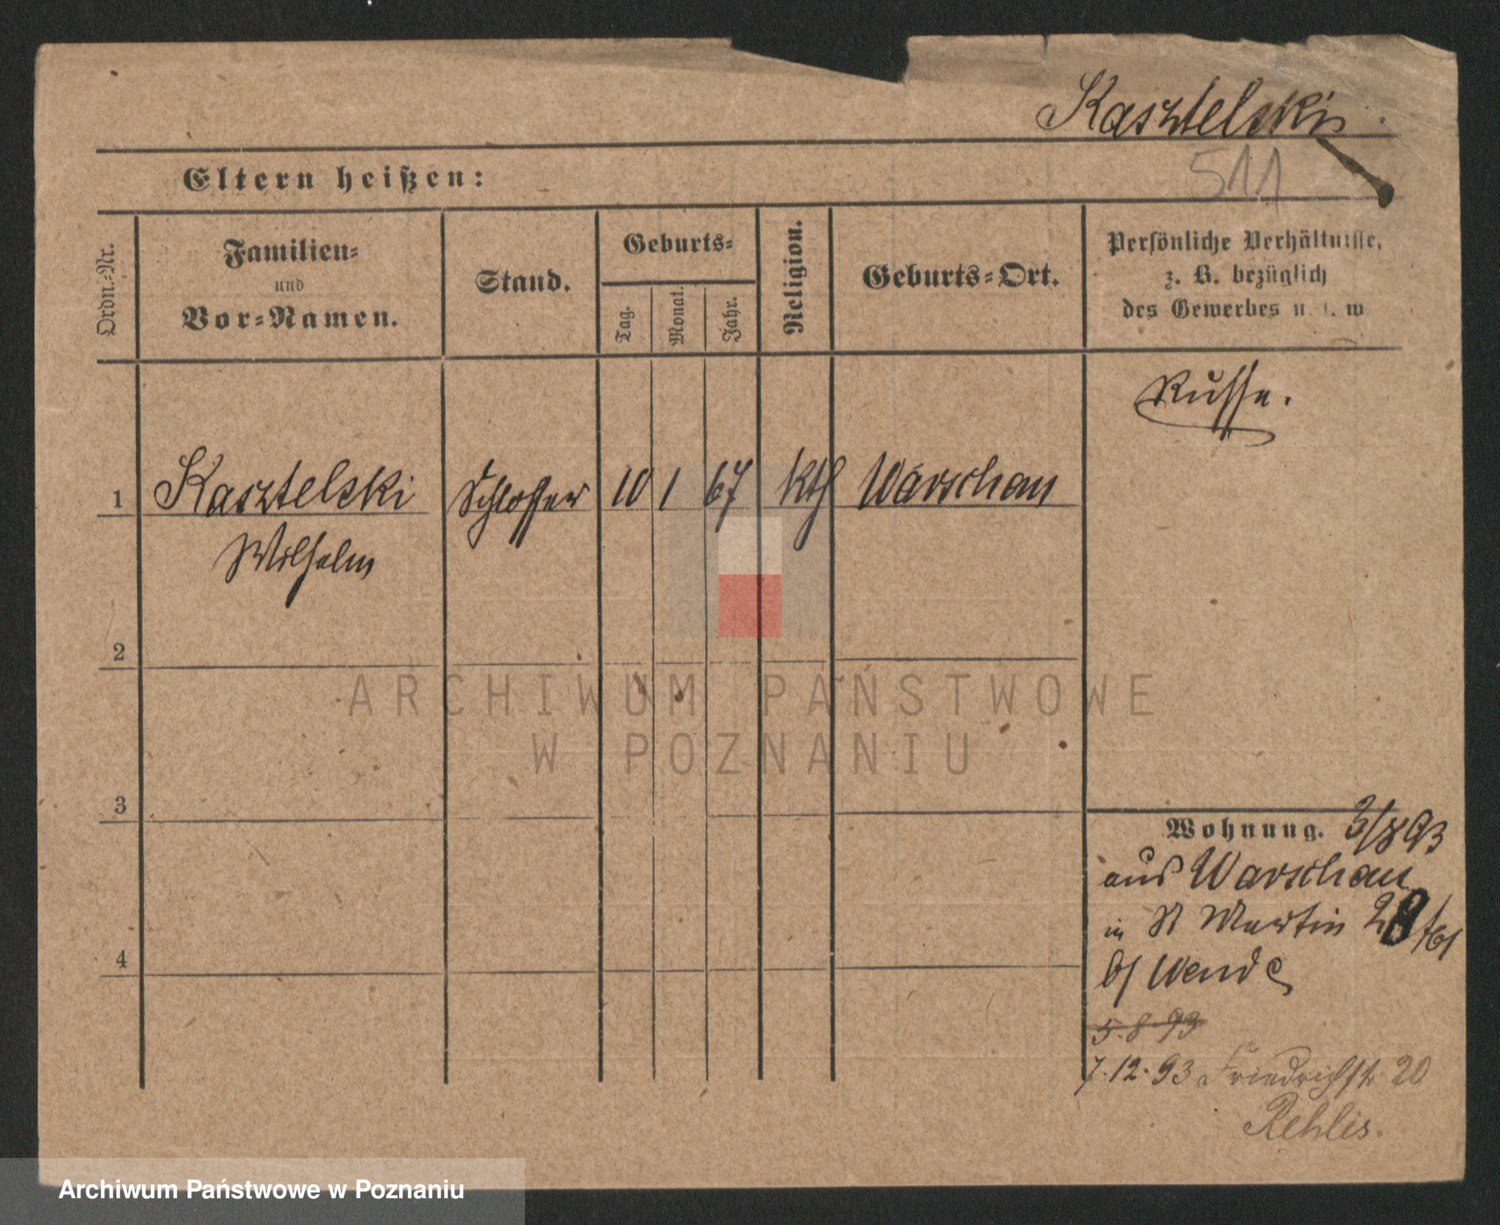 Kasztelski.
511
Eltern heißen:
Ordn.-Nr.
Familien-
und
Vor-Namen.
Stand.
Geburts-
Tag.
Monat.
Jahr.
Religion.
Geburts-Ort.
Persönliche Verhältnisse,
z. B. bezüglich
des Gewerbes u. s. w
Russe.
1 Kasztelski Schlosser 10 1 67 kth Warschau
Wilhelm
2
3
4
Wohnung. 3/8 93
aus Warschau
in St Martin 28
b/ Wende
5.8.93
7.12.93 Friedrichstr. 20
Rehlis.
ARCHIWUM PAŃSTWOWE
W POZNANIU
Archiwum Państwowe w Poznaniu